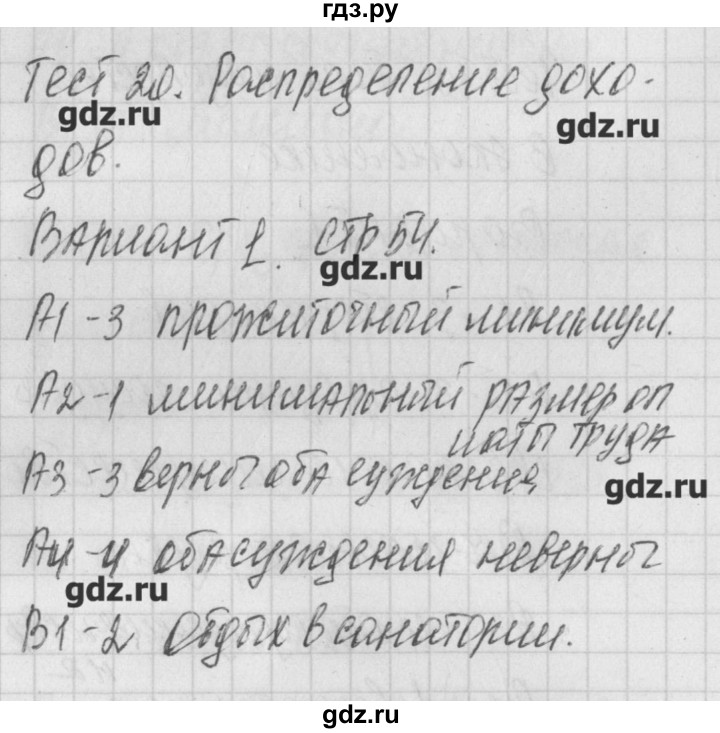 гдз.ру
Тест 20. Распределение дохо-
gdz.ru
gdz.ru
дов.
Вариант 1. стр 54.
gdz.ru
А1-3 прожиточный минимум.
А2-1 минимальный размер оп
латы труда
А3-3 верны оба суждения
gdz.ru
А4-4 оба суждения неверны
gdz.ru
В1-2 Отдых в санатории.
gdz.ru